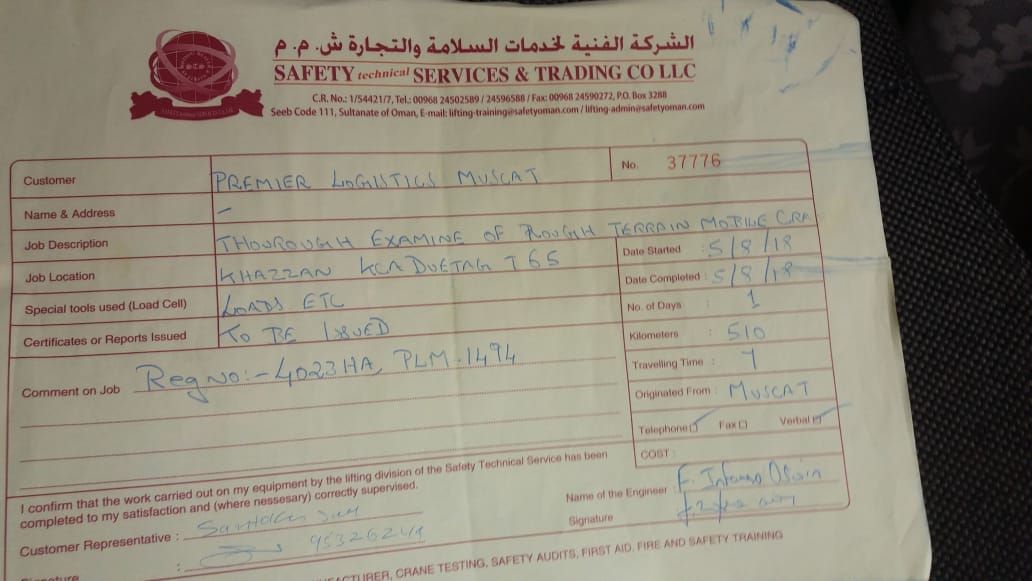 الشركة الفنية لخدمات السلامة والتجارة ش. م. م
SAFETY technical SERVICES & TRADING CO LLC
C.R. No.: 1/54421/7, Tel.: 00968 24502589 / 24596588 / Fax: 00968 24590272, P.O. Box 3288
Seeb Code 111, Sultanate of Oman, E-mail: lifting-training@safetyoman.com / lifting-admin@safetyoman.com
Customer PREMIER LOGISTICS MUSCAT No. 37776
Name & Address –
Job Description THOUROUGH EXAMINE OF ROUGH TERRAIN MOBILE CRA
Job Location KHAZZAN KCA DUETAG T65 Date Started : 5/8/18
Date Completed : 5/8/18
Special tools used (Load Cell) LOADS ETC No. of Days : 1
Certificates or Reports Issued TO BE ISSUED Kilometers : 510
Comment on Job Reg No:- 4023HA, PLM.1494 Travelling Time : 7
Originated From : MUSCAT
Telephone Fax Verbal
COST :
I confirm that the work carried out on my equipment by the lifting division of the Safety Technical Service has been
completed to my satisfaction and (where nessesary) correctly supervised.
Name of the Engineer : F.
Customer Representative :
Signature
95326244
Signature :
CRANE TESTING, SAFETY AUDITS, FIRST AID, FIRE AND SAFETY TRAINING